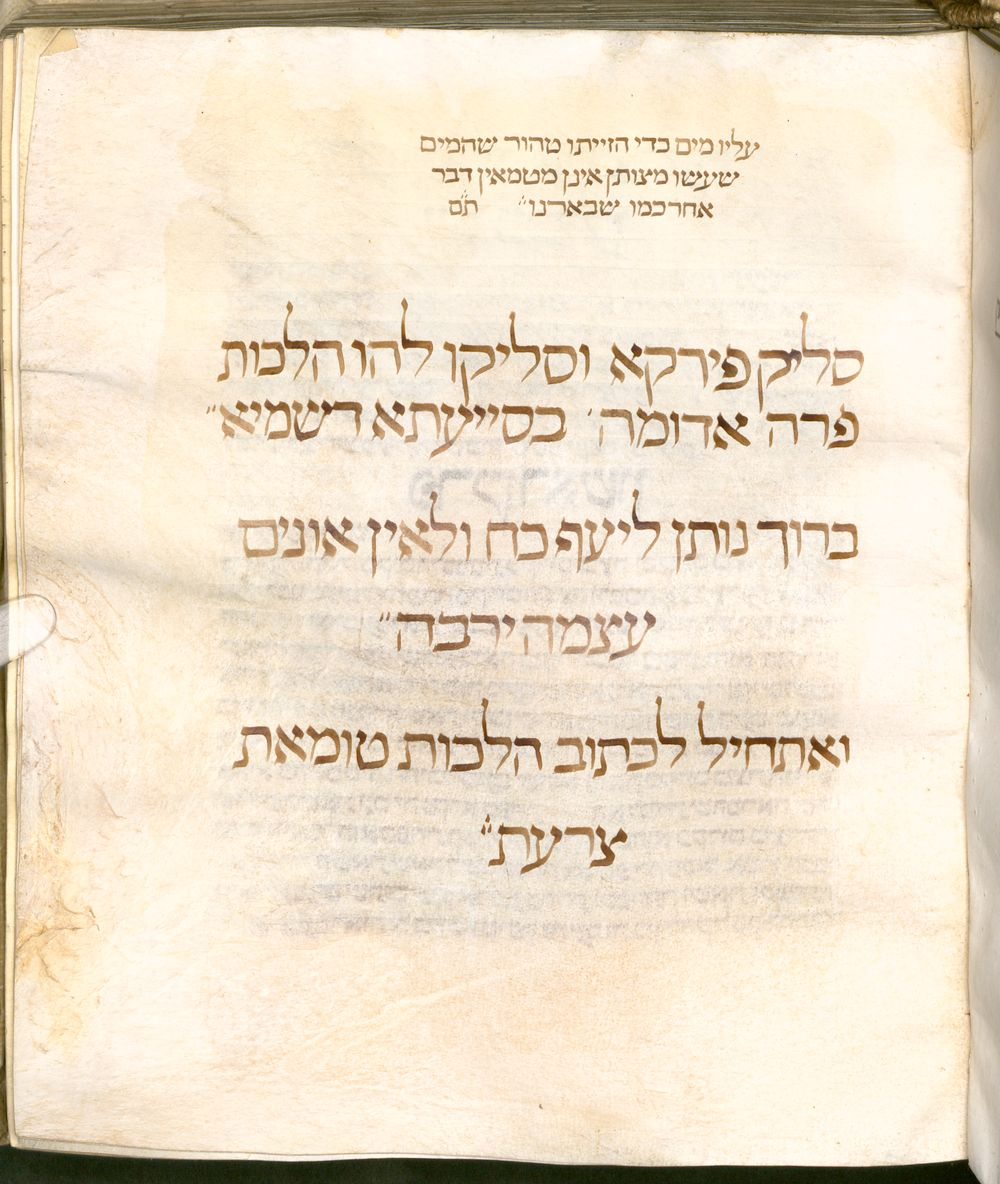 עליו מים כדי הזייתו טהור שהמים
שעשו מצותן אינן מטמאין דבר
אחר כמו שבארנו״ תם
סליק פירקא וסליקו להו הלכות
פרה אדומה׳ בסייעתא דשמיא״
ברוך נותן ליעף כח ולאין אונים
עצמה ירבה״
ואתחיל לכתוב הלכות טומאת
צרעת״